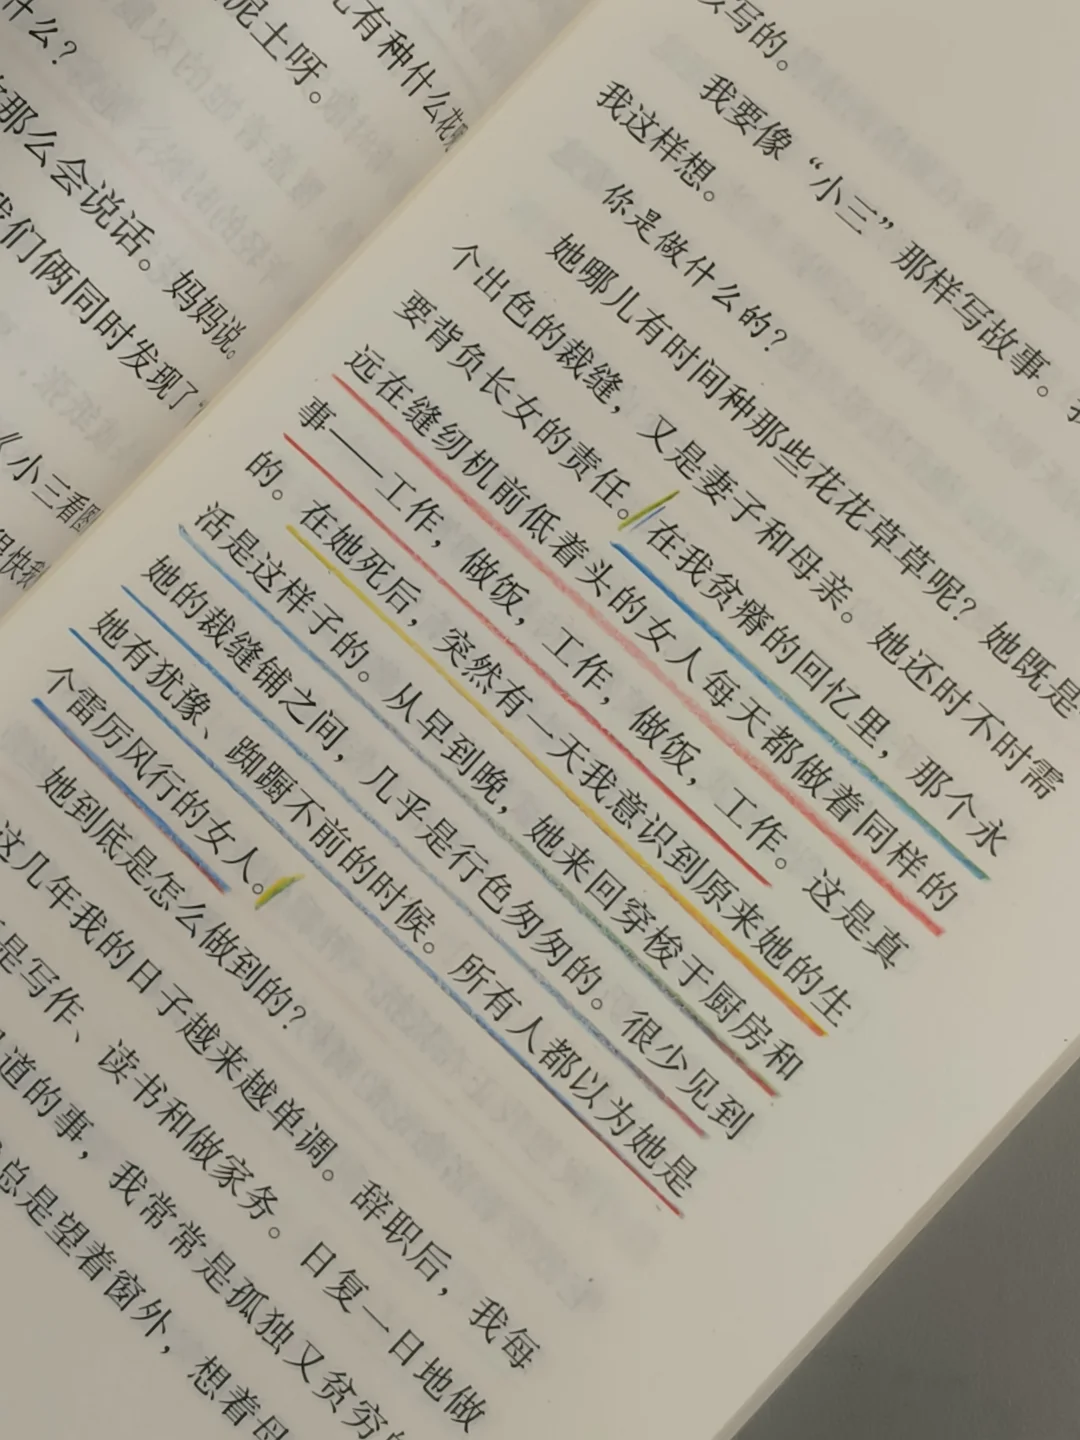 什么？
那么会说话。妈妈说。
我们俩同时发现了
《小三看图
很快我
泥土呀。
有种什么花
写的。
我要像“小三”那样写故事。
我这样想。
你是做什么的？
她哪儿有时间种那些花花草草呢？她既是
个出色的裁缝，又是妻子和母亲。她还时不时需
要背负长女的责任。在我贫瘠的回忆里，那个永
远在缝纫机前低着头的女人每天都做着同样的
事——工作，做饭，工作，做饭，工作。这是真
的。在她死后，突然有一天我意识到原来她的生
活是这样子的。从早到晚，她来回穿梭于厨房和
她的裁缝铺之间，几乎是行色匆匆的。很少见到
她有犹豫、踟蹰不前的时候。所有人都以为她是
个雷厉风行的女人。
她到底是怎么做到的？
这几年我的日子越来越单调。辞职后，我每
是写作、读书和做家务。日复一日地做
道的事，我常常是孤独又贫穷的
总是望着窗外，想着母